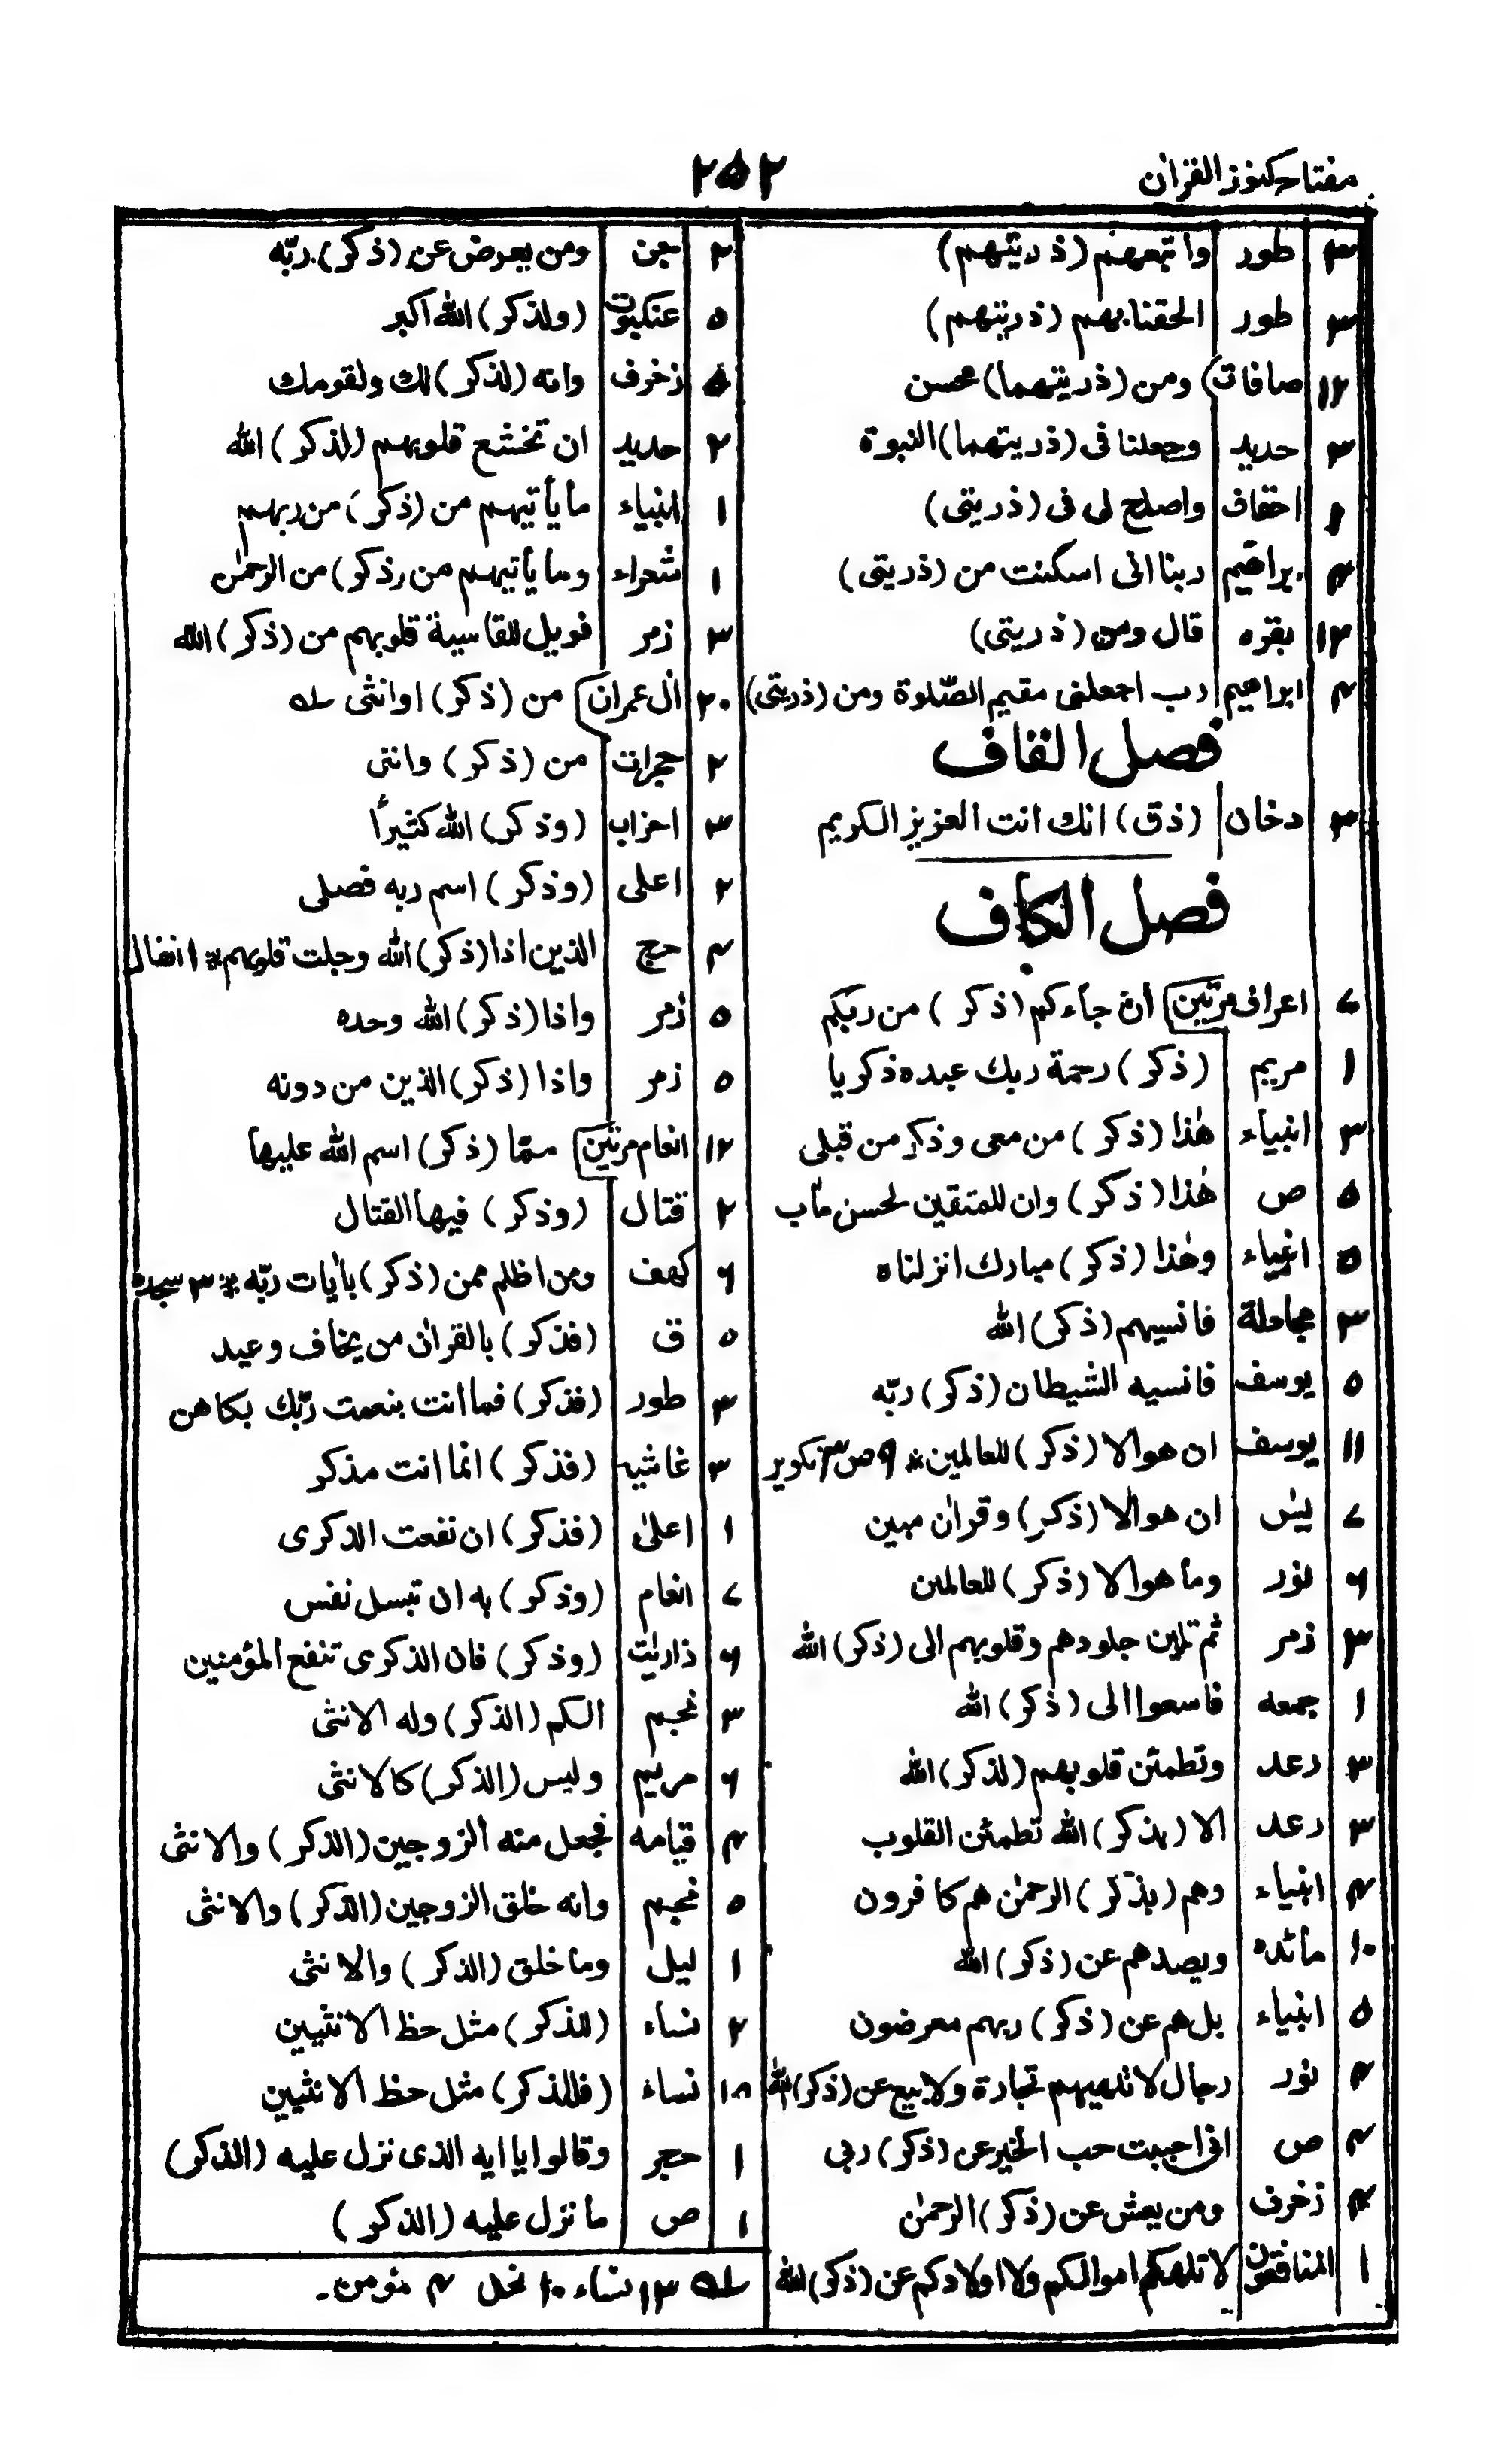 مفتاح كنوز القرآن ۲۵۲
۳ طور واتبعهم (ذريتهم)
۳ طور الحقنا بهم (ذريتهم)
۱۲ صافات ومن (ذريتهما) محسن
۳ حديد وجعلنا فى (ذريتهما) النبوة
احقاف واصلح لى فى (ذريتى)
۴ ابراهيم ربنا انى اسكنت من (ذريتى)
۱۳ بقره قال ومن (ذريتى)
۴ ابراهيم رب اجعلنى مقيم الصّلوة ومن (ذريتى)
فصل القاف
۳ دخان (ذق) انك انت العزيز الكريم
فصل الكاف
۷ اعراف مرتين أن جآءكم (ذكر) من ربكم
۱ مريم (ذكر) رحمة ربك عبده ذكريا
۳ انبياء هٰذا (ذكر) من معى وذكر من قبلى
۵ ص هٰذا (ذكر) وان للمتقين لحسن مآب
۵ انبياء وهٰذا (ذكر) مبارك انزلناه
۳ مجادلة فانسيهم (ذكر) الله
۵ يوسف فانسيه الشيطان (ذكر) ربّه
۱۱ يوسف ان هو الا (ذكر) للعالمين ٭ ۹ ص ۳ تكوير
۷ يٰس ان هو الا (ذكر) وقرآن مبين
۶ نور وما هو الا (ذكر) للعالمين
۳ زمر ثم تلين جلودهم وقلوبهم الى (ذكر) الله
۱ جمعه فاسعوا الى (ذكر) الله
۳ رعد وتطمئن قلوبهم (لذكر) الله
۳ رعد الا (بذكر) الله تطمئن القلوب
۴ انبياء وهم (بذكر) الرحمٰن هم كافرون
۱۰ مائده ويصدهم عن (ذكر) الله
۵ انبياء بل هم عن (ذكر) ربهم معرضون
۴ نور رجال لا تلهيهم تجارة ولا بيع عن (ذكر) الله
۴ ص انى احببت حب الخير عن (ذكر) ربى
۴ زخرف ومن يعش عن (ذكر) الرحمٰن
۱ المنافقون لا تلهكم اموالكم ولا اولادكم عن (ذكر) الله
۲ جن ومن يعرض عن (ذكر) ربّه
۵ عنكبوت (ولذكر) الله اكبر
زخرف وانه (لذكر) لك ولقومك
۲ حديد ان تخشع قلوبهم (لذكر) الله
۱ انبياء ما يأتيهم من (ذكر) من ربهم
۱ شعراء وما يأتيهم من (ذكر) من الرحمٰن
۳ زمر فويل للقاسية قلوبهم من (ذكر) الله
۲۰ آل عمران من (ذكر) او انثى ؎
۲ حجرات من (ذكر) وانثى
۳ احزاب (وذكر) الله كثيراً
۲ اعلى (وذكر) اسم ربه فصلى
۴ حج الذين اذا (ذكر) الله وجلت قلوبهم ٭ ۱ انفال
۵ زمر واذا (ذكر) الله وحده
۵ زمر واذا (ذكر) الذين من دونه
۱۲ انعام مرتين ممّا (ذكر) اسم الله عليها
۲ قتال (وذكر) فيها القتال
۶ كهف ومن اظلم ممن (ذكر) بآيات ربّه ٭ ۳ سجده
۵ ق (فذكر) بالقرآن من يخاف وعيد
۳ طور (فذكر) فما انت بنعمت ربّك بكاهن
۳ غاشيه (فذكر) انما انت مذكر
۱ اعلىٰ (فذكر) ان نفعت الذكرى
۷ انعام (وذكر) به ان تبسل نفس
۶ ذاريٰت (وذكر) فان الذكرى تنفع المؤمنين
۳ نجم الكم (الذكر) وله الانثى
۶ مريم وليس (الذكر) كالانثى
۴ قيامه فجعل منه الزوجين (الذكر) والانثى
۵ نجم وانه خلق الزوجين (الذكر) والانثى
۱ ليل وما خلق (الذكر) والانثى
۲ نساء (للذكر) مثل حظ الانثيين
۱۸ نساء (فللذكر) مثل حظ الانثيين
۱ حجر وقالوا يا ايه الذى نزل عليه (الذكر)
۱ ص ما نزل عليه (الذكر)
؎ ۱۳ نساء ۱۰ نحل ۴ مؤمن۔